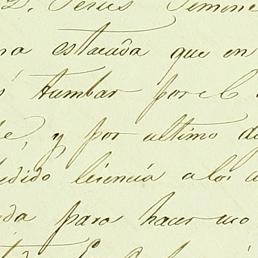 D. Jesus Simone
na estacada que en
tumbar por el C
te, y por ultimo de
edido licencia a los a
da para hacer uso